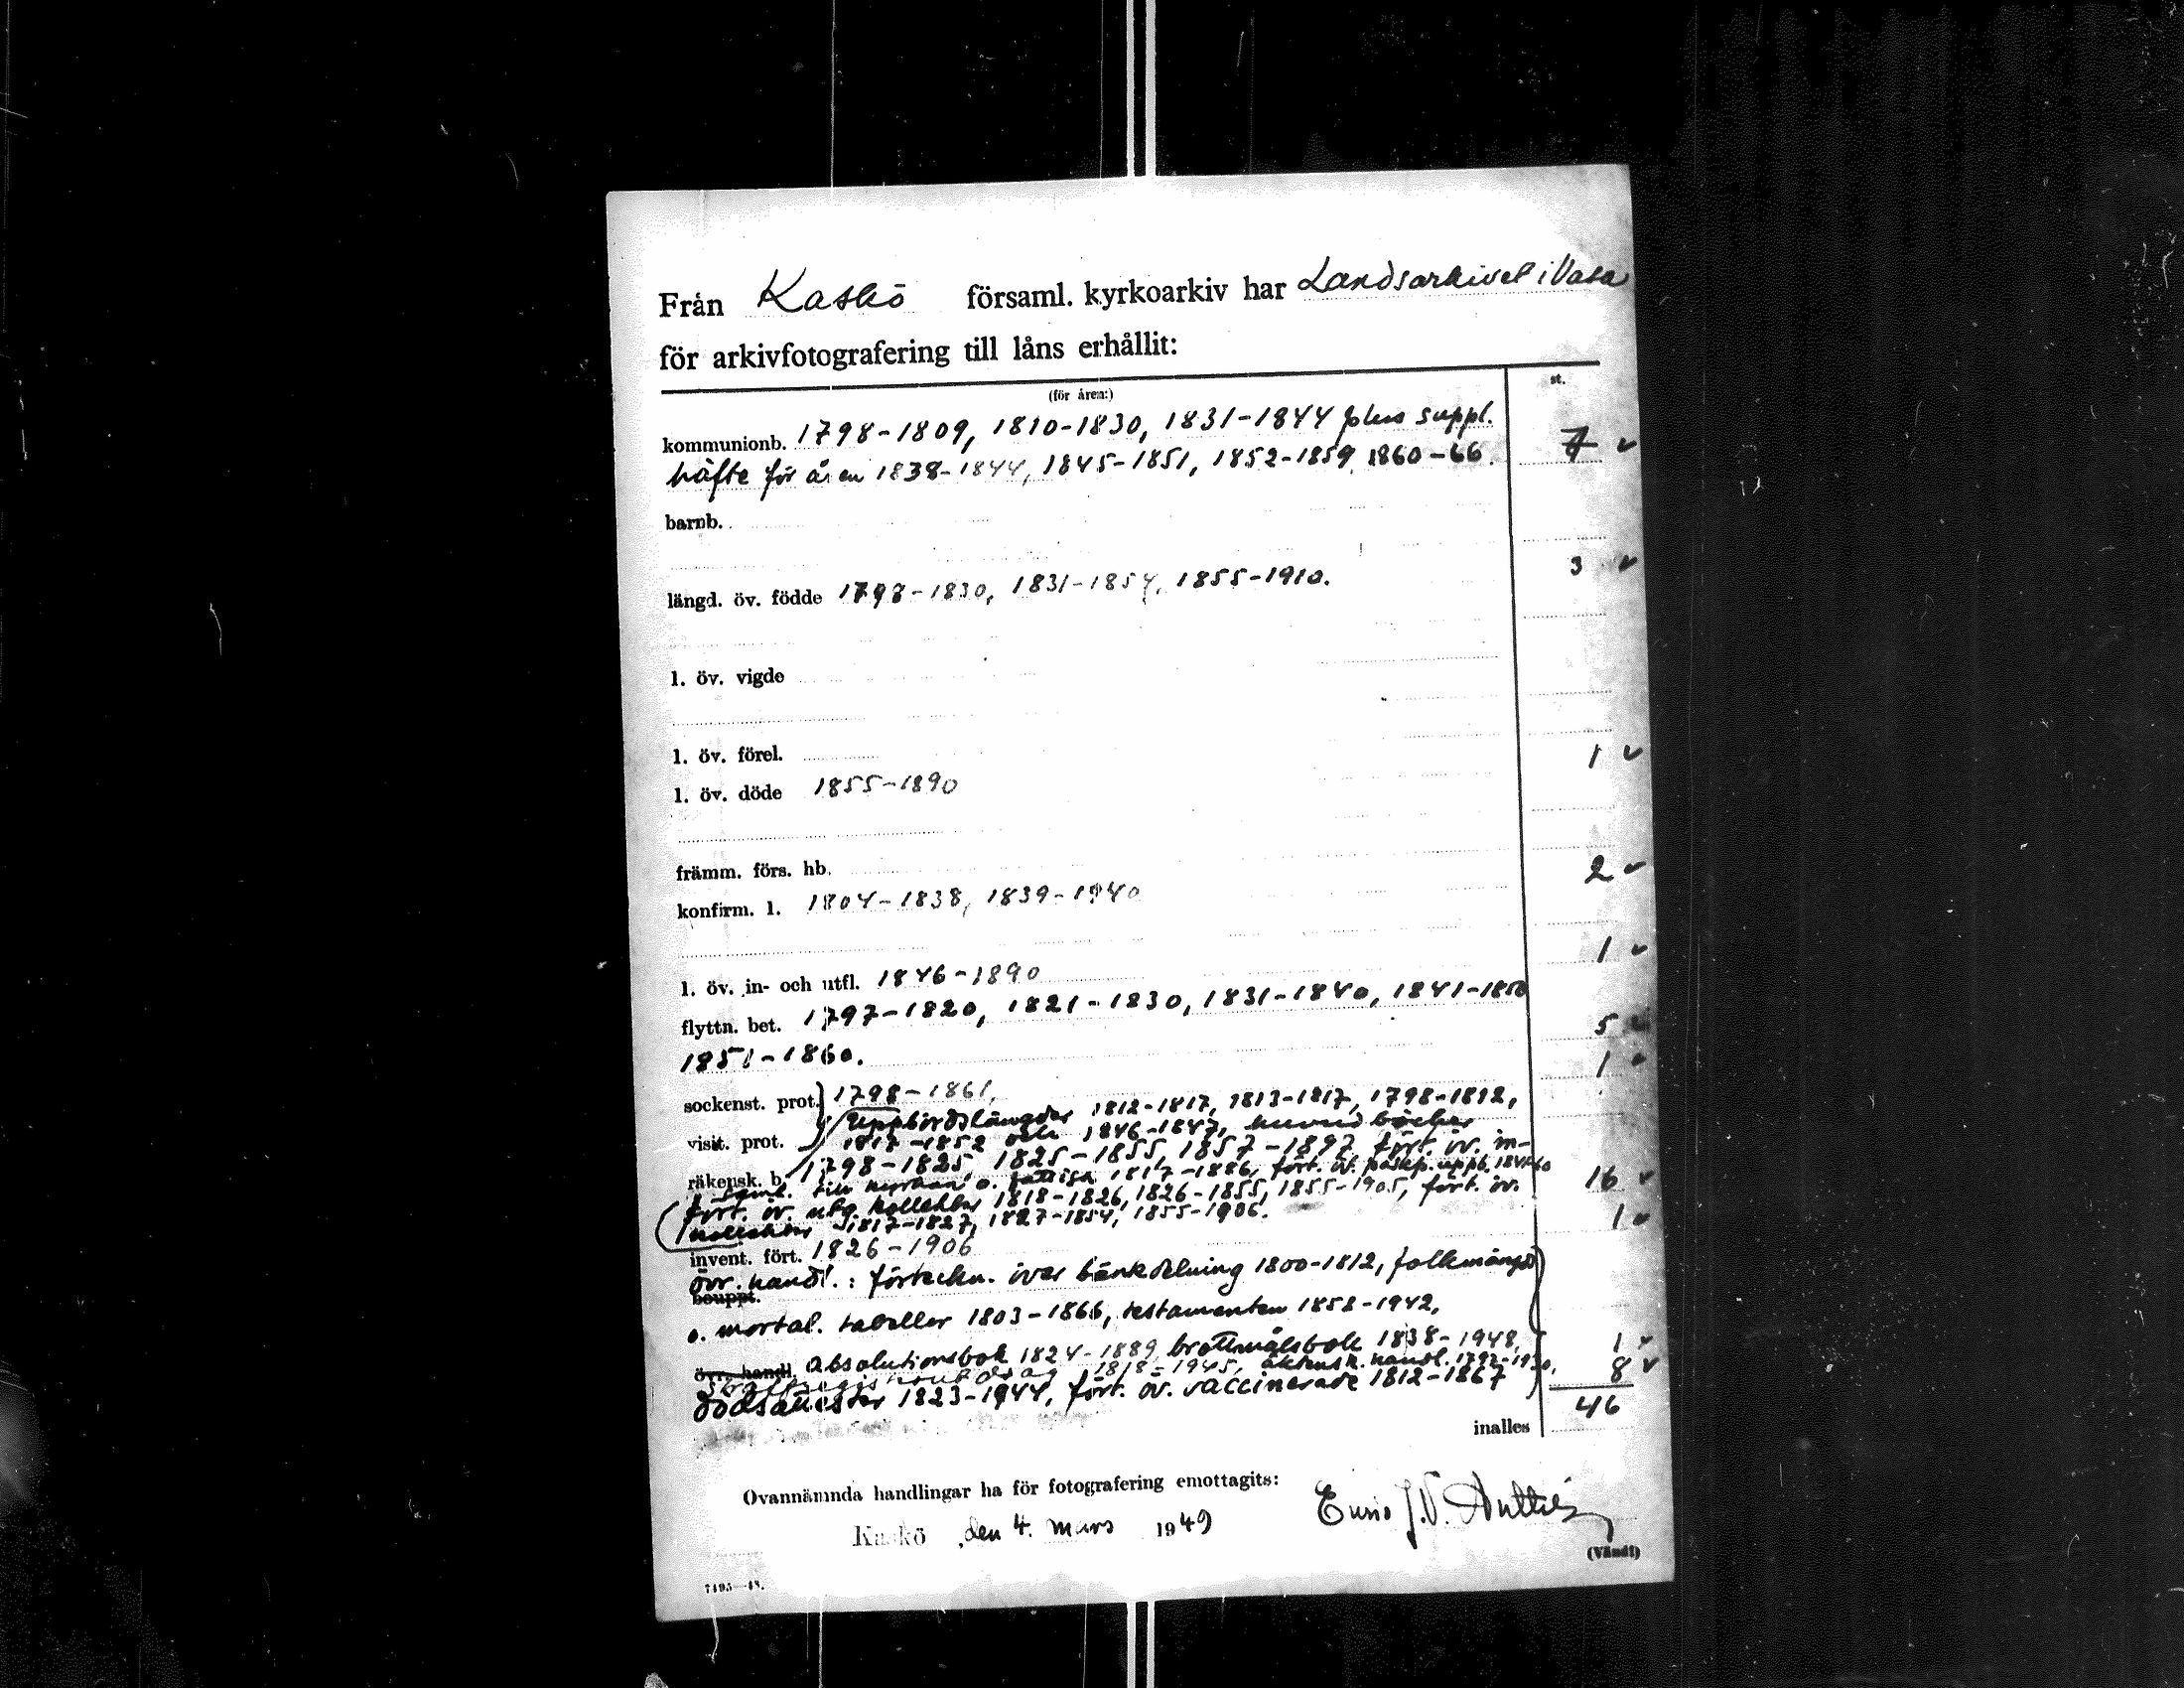 Från Kaskö församl. kyrkoarkiv har Landsarkivet i Vasa
för arkivfotografering till låns erhållit:
(för åren:) st.
kommunionb. 1798-1809, 1810-1830, 1831-1844 plus suppl.
häfte för åren 1838-1844, 1845-1851, 1852-1859, 1860-66. 7 ✓
barnb.
längd. öv. födde 1798-1830, 1831-1854, 1855-1910. 3 ✓
l. öv. vigde
l. öv. förel.
l. öv. döde 1855-1890 1 ✓
främm. förs. hb.
konfirm. l. 1804-1838, 1839-1940 2 ✓
l. öv. in- och utfl. 1846-1890 1 ✓
flyttn. bet. 1797-1820, 1821-1830, 1831-1840, 1841-1850
1851-1860. 5
sockenst. prot. 1798-1861, 1
Uppbördslängder 1812-1817, 1813-1817, 1798-1812,
visit. prot. 1817-1852 och 1846-1847, huvudböcker
räkensk. b. 1798-1825, 1825-1855, 1857-1897, fört. öv. in-
saml. till kyrkan o. fattiga 1817-1886, fört. öv. påskp. uppb. 1841-60 16 ✓
fört. öv. utg. kollekter 1818-1826, 1826-1855, 1855-1905, fört. öv.
kollekter 1817-1827, 1827-1854, 1855-1906.
invent. fört. 1826-1906 1 ✓
övr. handl.: förteckn. över bänkdelning 1800-1812, folkmängd
bouppt.
o. mortal. tabeller 1803-1866, testamenten 1858-1942,
övr. handl. Absolutionsbok 1824-1889, brottmålsbok 1838-1948, 1 ✓
straffregisterutdrag 1818-1945, äktensk. handl. 1792-1930, 8 ✓
dödsattester 1823-1944, fört. öv. vaccinerade 1812-1867
inalles 46
Ovannämnda handlingar ha för fotografering emottagits:
Kaskö, den 4. mars 1949
(Vänd!)
7495—48.